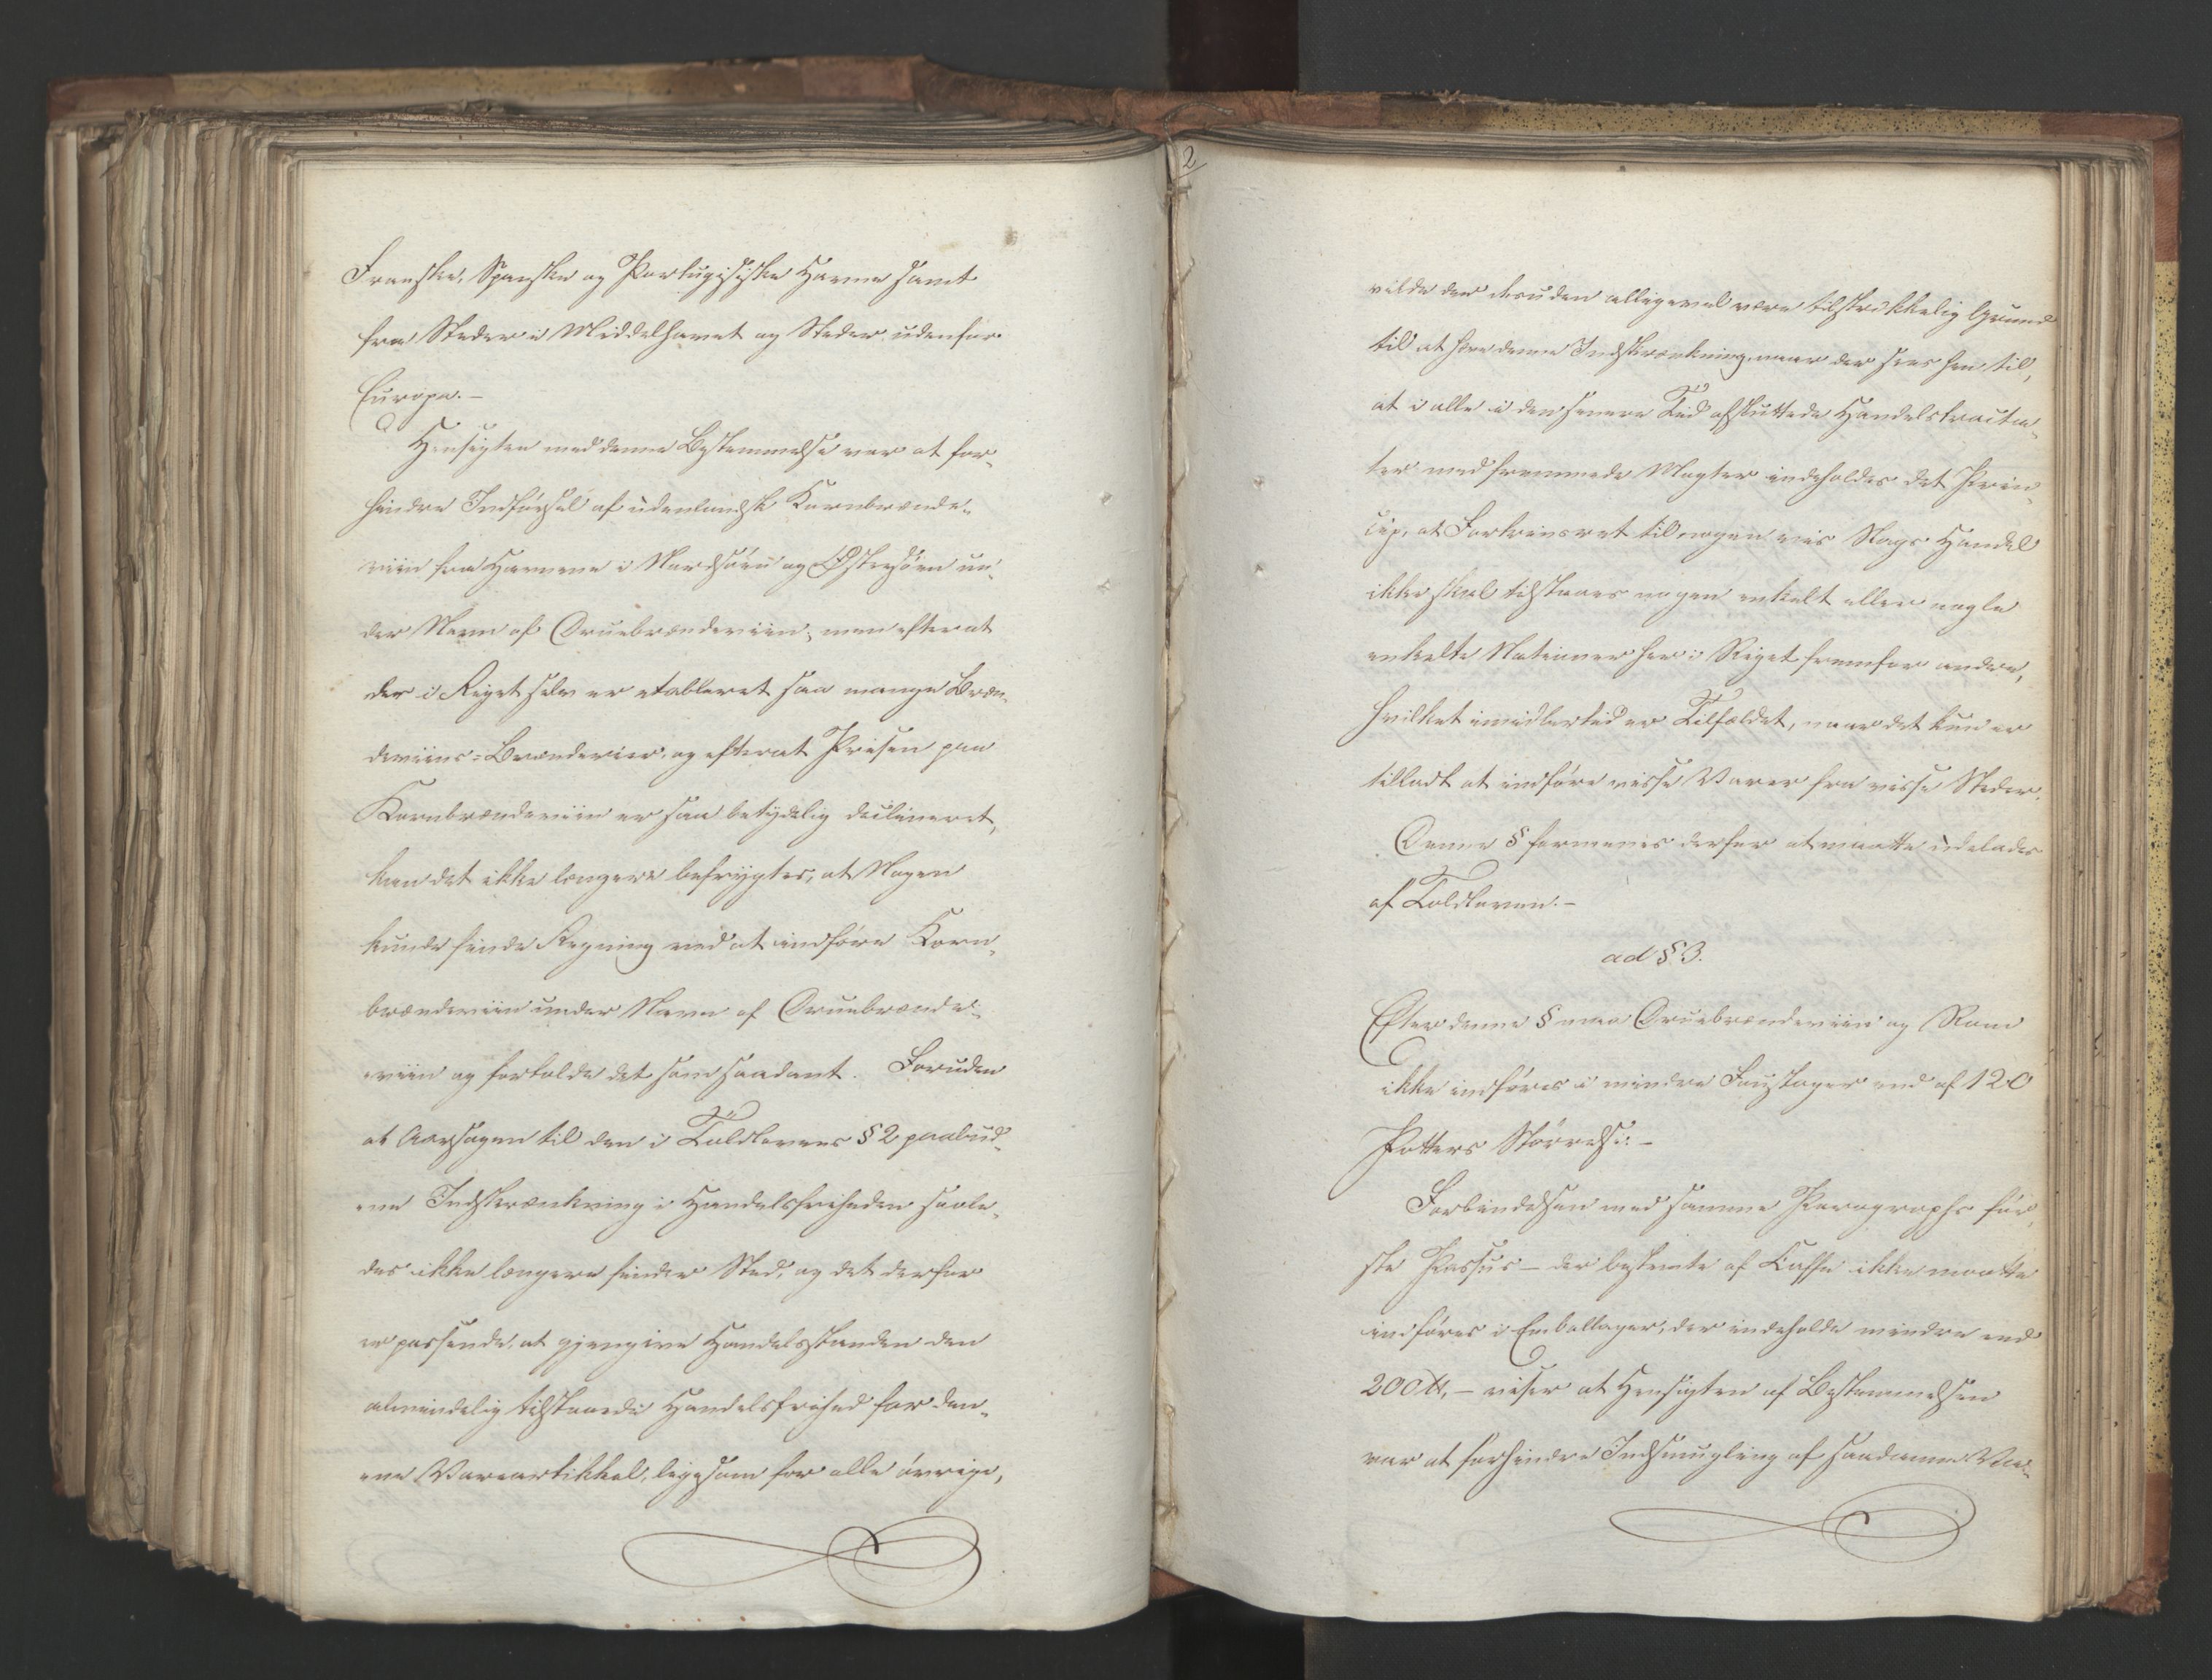 Franske, Spanske og Portugisiske Havne samt
fra Steder i Middelhavet og Steder udenfor
Europa. –
Hensigten med denne Bestemmelse var at for-
hindre Indførsel af udenlandsk Kornbrænde-
viin fra Havnene i Nordsøen og Østersøen un-
der Navn af Druebrændeviin; men efterat
der i Riget selv er etableret saa mange Bræn-
deviins-Brænderier, og efterat Prisen paa
Kornbrændeviin er saa betydelig declineret,
kan det ikke længere befrygtes, at Nogen
kunde finde Regning ved at indføre Korn-
brændeviin under Navn af Druebrænde-
viin og fortolde det som saadant. Foruden
at Aarsagen til den i Toldlovens § 2 paabud-
ene Indskrænkning i Handelsfriheden saale-
des ikke længere finder Sted, og det derfor
er passende, at gjengive Handelsstanden den
almindelig tilstaaede Handelsfrihed for den-
ne Vareartikkel, ligesom for alle øvrige,
2
vilde der desuden alligevel være tilstrækkelig Grund
til at hæve denne Indskrænkning, naar der sees hen til,
at i alle i den senere Tid afsluttede Handelstracta-
ter med fremmede Magter indeholdes det Prin-
cip, at Fortrinsret til nogen vis Slags Handel
ikke skal tilstaaes nogen enkelt eller nogle
enkelte Nationer her i Riget fremfor andre,
hvilket imidlertid er Tilfældet, naar det kun er
tilladt at indføre visse Varer fra visse Steder.
Denne § formenes derfor at maatte udelades
af Toldloven. –
ad § 3.
Efter denne § maa Druebrændeviin og Rom
ikke indføres i mindre Fustager end af 120
Potters Størrelse. –
Forbindelsen med samme Paragraphs før-
ste Passus – der bestemte at Caffe ikke maatte
indføres i Emballager, der indeholde mindre end
200 ℔, – viser at Hensigten af Bestemmelsen
var at forhindre Indsmugling af saadanne Va-